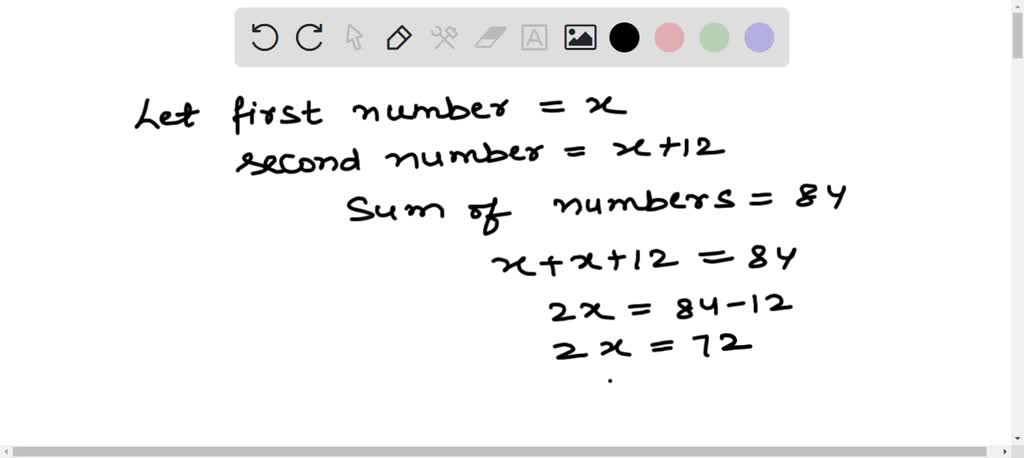 Let first number = x
second number = x+12
Sum of numbers = 84
x+x+12 = 84
2x = 84-12
2x = 72